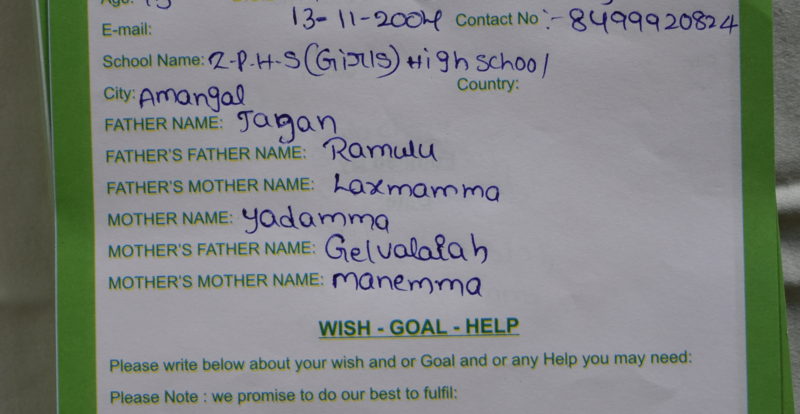 13-11-2004 Contact No :- 8499920824
E-mail:
School Name: Z-P-H-S (Girls) High school
Country:
City: Amangal
FATHER NAME: Jagan
FATHER'S FATHER NAME: Ramulu
FATHER'S MOTHER NAME: Laxmamma
MOTHER NAME: Yadamma
MOTHER'S FATHER NAME: Gelvalaiah
MOTHER'S MOTHER NAME: manemma
WISH - GOAL - HELP
Please write below about your wish and or Goal and or any Help you may need:
Please Note : we promise to do our best to fulfil: